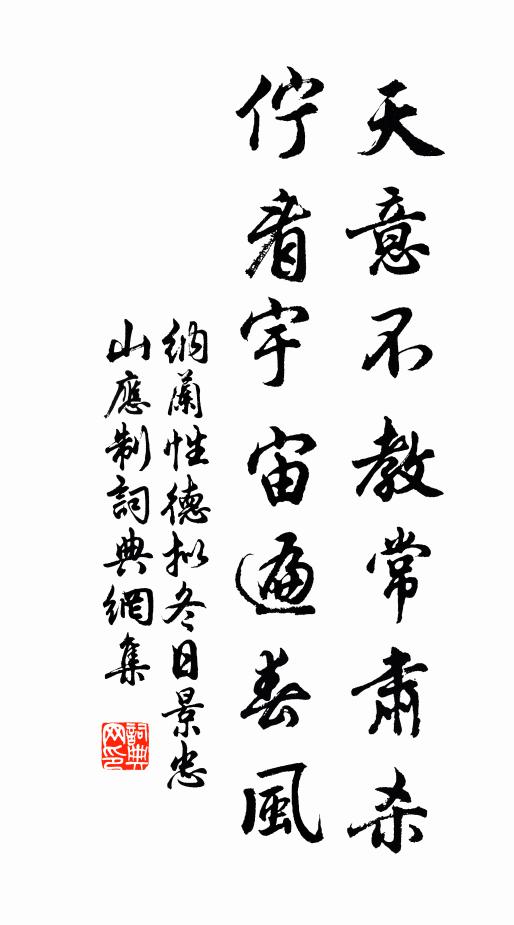 天意不教常肅杀
佇看宇宙遍春風
納蘭性德拟冬日景忠
山應制詞典網集
詞典网印